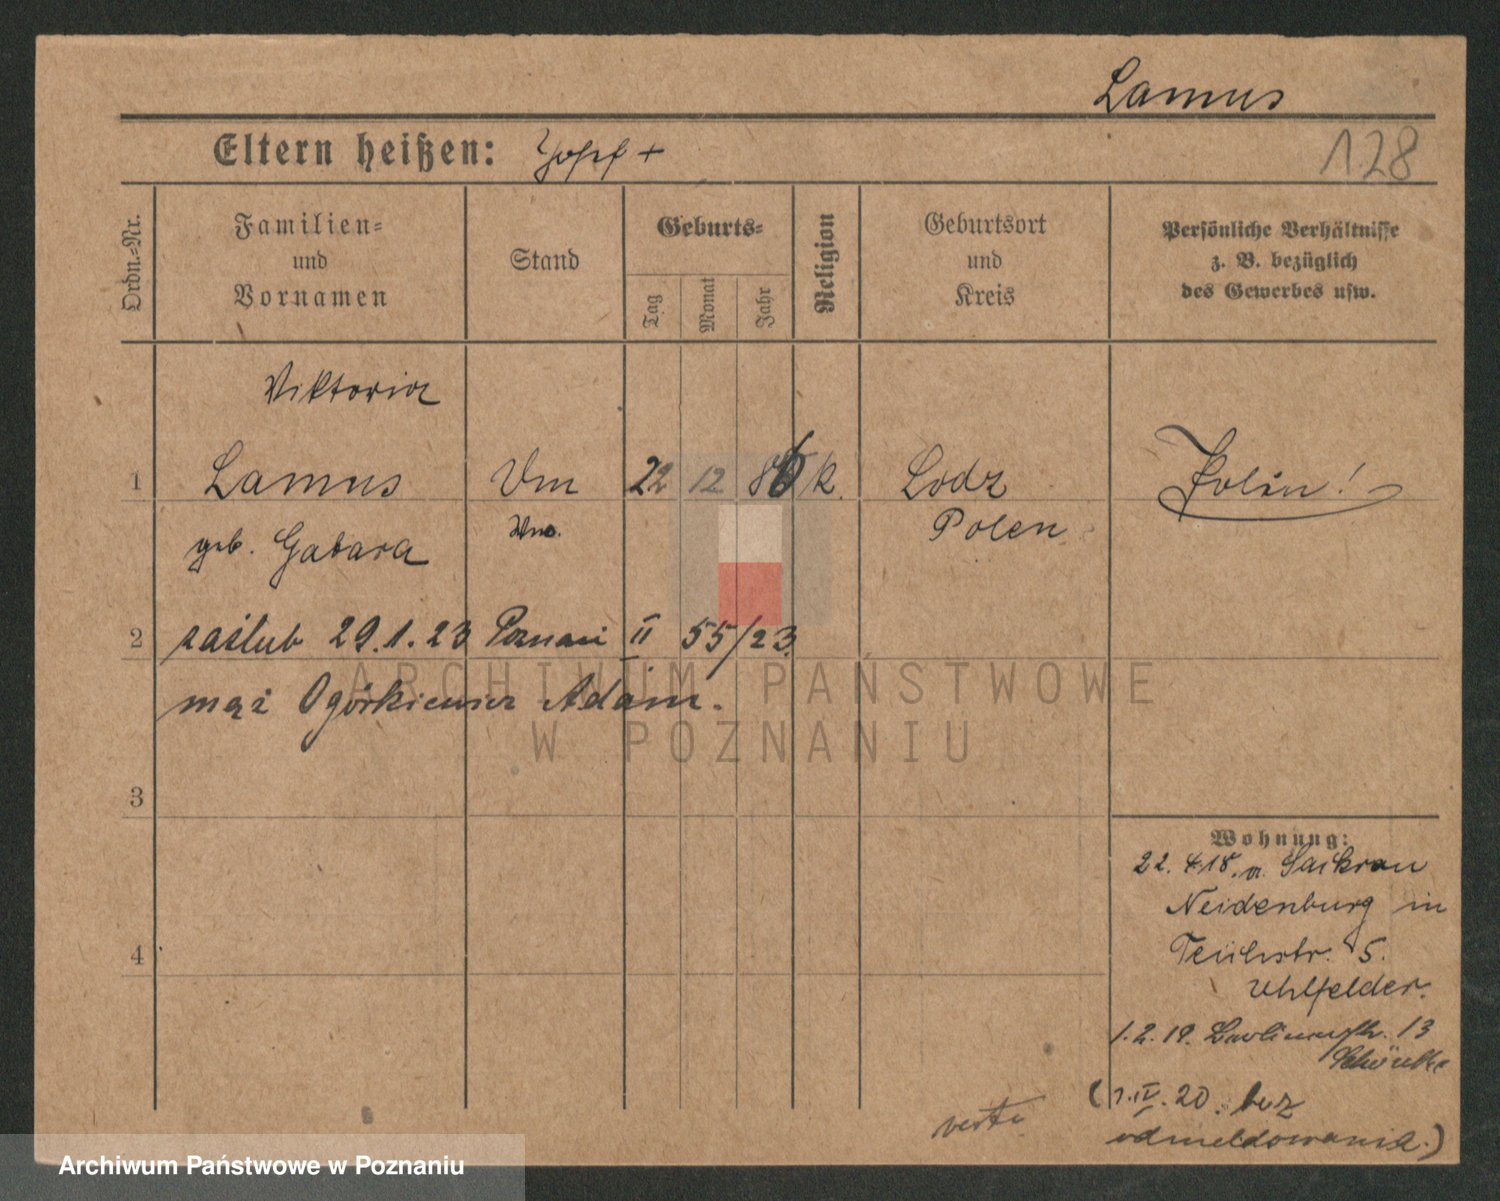 Lamus
Eltern heißen: Josef +
128
Ordn.=Nr.
Familien=
und
Vornamen
Stand
Geburts=
Tag
Monat
Jahr
Religion
Geburtsort
und
Kreis
Persönliche Verhältnisse
z. B. bezüglich
des Gewerbes usw.
Viktoria
1 Lamus 22 12 86 k. Lodz Polin!
geb. Gabara Wwe. Polen
2 zaślub 29.1.23 Poznań II 55/23.
mąż Ogórkiewicz Adam.
3
4
Wohnung:
22. 4 18. a. Sackrau
Neidenburg in
5.
Uhlfelder.
1.2.19. 13
(1.IV.20. bez
odmeldowania.)
verte
ARCHIWUM PAŃSTWOWE
W POZNANIU
Archiwum Państwowe w Poznaniu